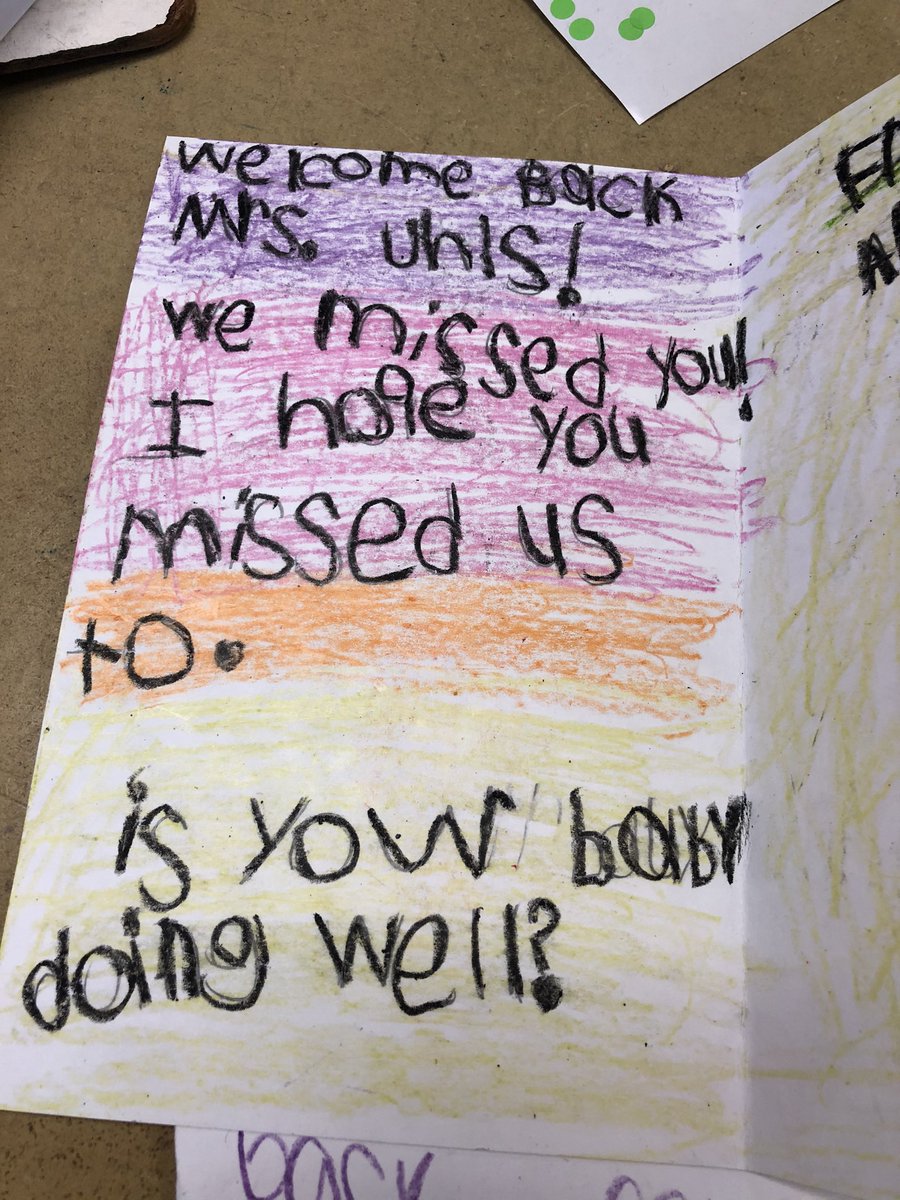 welcome Back
Mrs. uhls!
we missed you!
I hope you
missed us
to.
is your baby
doing well?
back